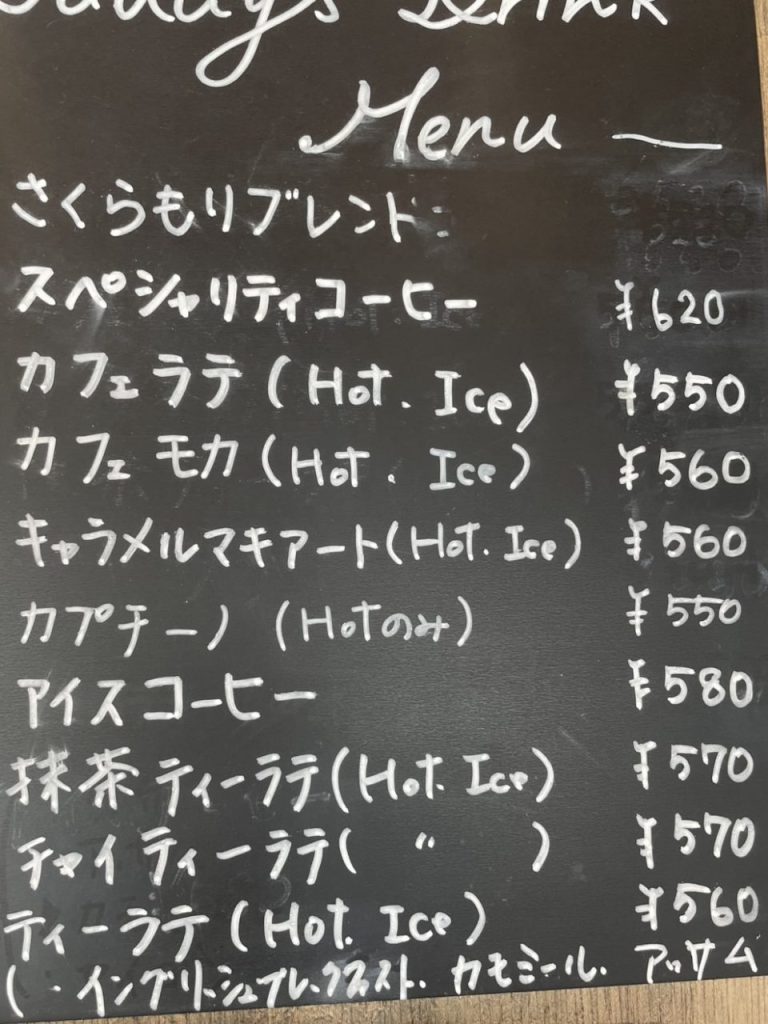 Today's Drink
Menu
さくらもりブレンド
スペシャリティコーヒー ¥620
カフェラテ (Hot. Ice) ¥550
カフェ モカ (Hot. Ice) ¥560
キャラメルマキアート(Hot. Ice) ¥560
カプチーノ (Hotのみ) ¥550
アイスコーヒー ¥580
抹茶ティーラテ(Hot. Ice) ¥570
チャイティーラテ( 〃 ) ¥570
ティーラテ (Hot. Ice) ¥560
(・イングリッシュブレックファスト. カモミール. アッサム